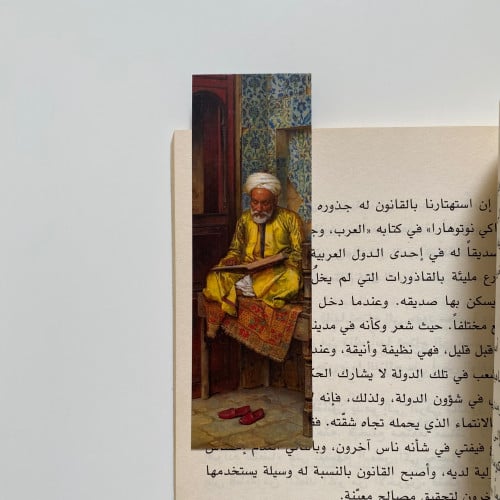 إن استهتارنا بالقانون له جذوره
اكي نوتوهارا» في كتابه «العرب،
صديقاً له في إحدى الدول العربية
مليئة بالقاذورات التي لم
يسكن بها صديقه. وعندما دخل
مختلفاً. حيث شعر وكأنه في
قبل قليل، فهي نظيفة وأنيقة،
في تلك الدولة لا يشارك
في شؤون الدولة، ولذلك، فإنه
الانتماء الذي يحمله تجاه شقّته.
فيفتي في شأنه ناس آخرون،
لديه، وأصبح القانون بالنسبة له وسيلة يستخدمها
لتحقيق مصالح معيّنة.